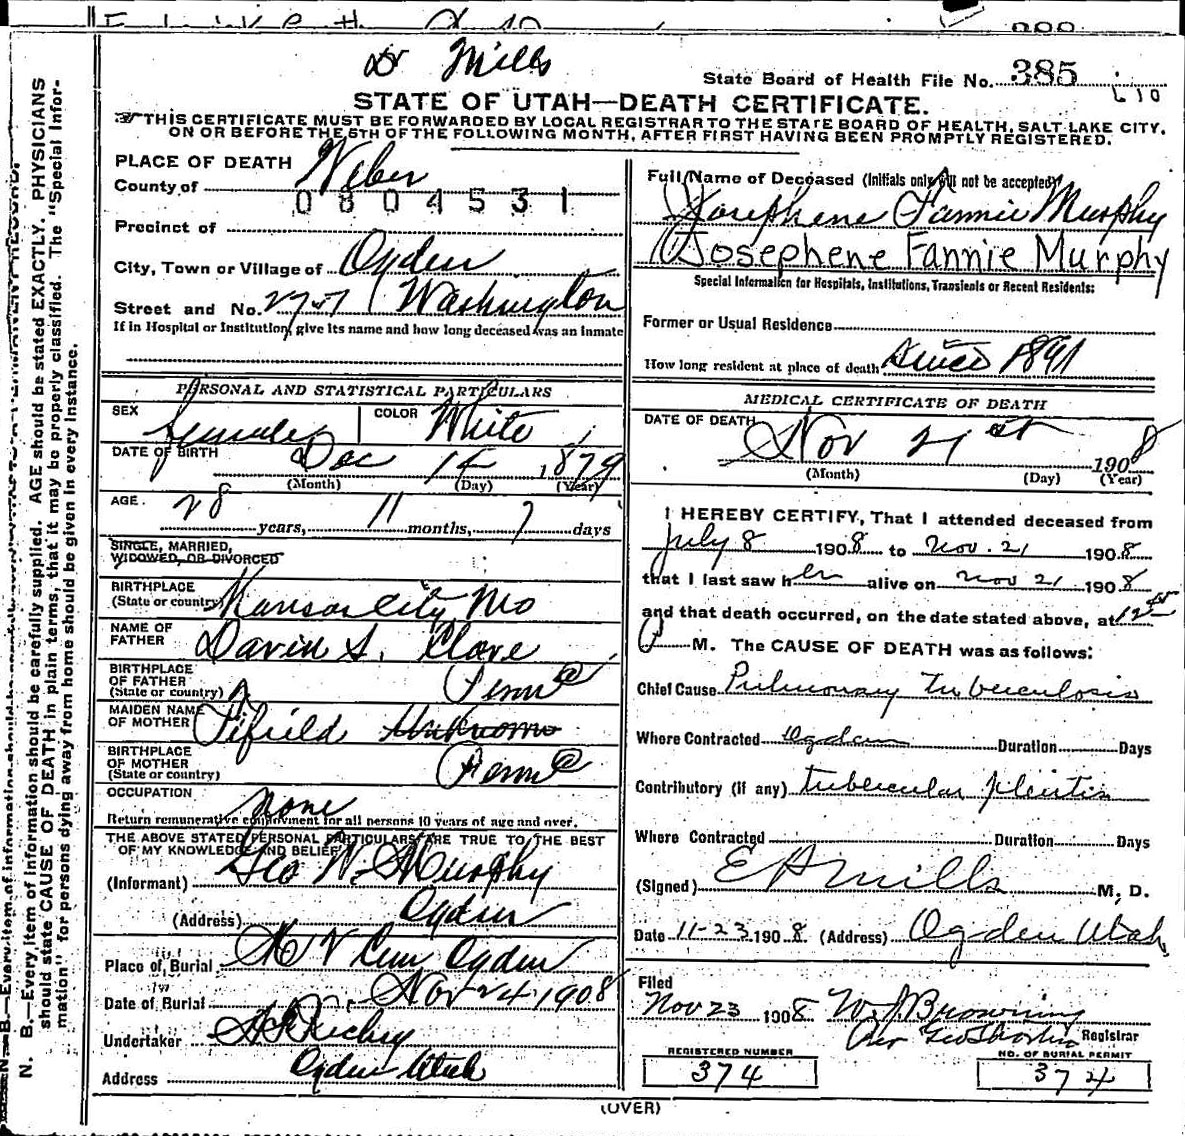 Dr Mills
State Board of Health File No. 385
STATE OF UTAH—DEATH CERTIFICATE.
THIS CERTIFICATE MUST BE FORWARDED BY LOCAL REGISTRAR TO THE STATE BOARD OF HEALTH, SALT LAKE CITY,
ON OR BEFORE THE 5TH OF THE FOLLOWING MONTH, AFTER FIRST HAVING BEEN PROMPTLY REGISTERED.
N. B.—Every item of information should be carefully supplied. AGE should be stated EXACTLY. PHYSICIANS
should state CAUSE OF DEATH in plain terms, that it may be properly classified. The "Special Infor-
mation" for persons dying away from home should be given in every instance.
PLACE OF DEATH
County of Weber
0804531
Precinct of
City, Town or Village of Ogden
Street and No. Washington
If in Hospital or Institution, give its name and how long deceased was an inmate
PERSONAL AND STATISTICAL PARTICULARS
SEX Female COLOR White
DATE OF BIRTH Dec 14 1879
(Month) (Day) (Year)
AGE 28 years, 11 months, 7 days
SINGLE, MARRIED,
WIDOWED, OR DIVORCED
BIRTHPLACE
(State or country) Kansas City Mo
NAME OF
FATHER David S.
BIRTHPLACE
OF FATHER
(State or country) Penn
MAIDEN NAME
OF MOTHER Fifield Unknown
BIRTHPLACE
OF MOTHER
(State or country) Penn
OCCUPATION none
Return remunerative employment for all persons 10 years of age and over.
THE ABOVE STATED PERSONAL PARTICULARS ARE TRUE TO THE BEST
OF MY KNOWLEDGE AND BELIEF
(Informant) Geo N. Murphy
(Address) Ogden
Place of Burial Cem Ogden
Date of Burial Nov 24 1908
Undertaker
Address Ogden Utah
Full Name of Deceased (Initials only will not be accepted)
Josephene Fannie Murphy
Josephene Fannie Murphy
Special Information for Hospitals, Institutions, Transients or Recent Residents:
Former or Usual Residence
How long resident at place of death Since 1891
MEDICAL CERTIFICATE OF DEATH
DATE OF DEATH Nov 21st 1908
(Month) (Day) (Year)
I HEREBY CERTIFY, That I attended deceased from
July 8 1908 to Nov. 21 1908
that I last saw her alive on Nov 21 1908
and that death occurred, on the date stated above, at 12
P M. The CAUSE OF DEATH was as follows:
Chief Cause Pulmonary Tuberculosis
Where Contracted Ogden Duration Days
Contributory (if any) tubercular pleuritis
Where Contracted Duration Days
(Signed) E H Mills M. D.
Date 11-23 1908 (Address) Ogden Utah
Filed
Nov 23 1908 W. J. Browning
Registrar
REGISTERED NUMBER
374
NO. OF BURIAL PERMIT
374
(OVER)